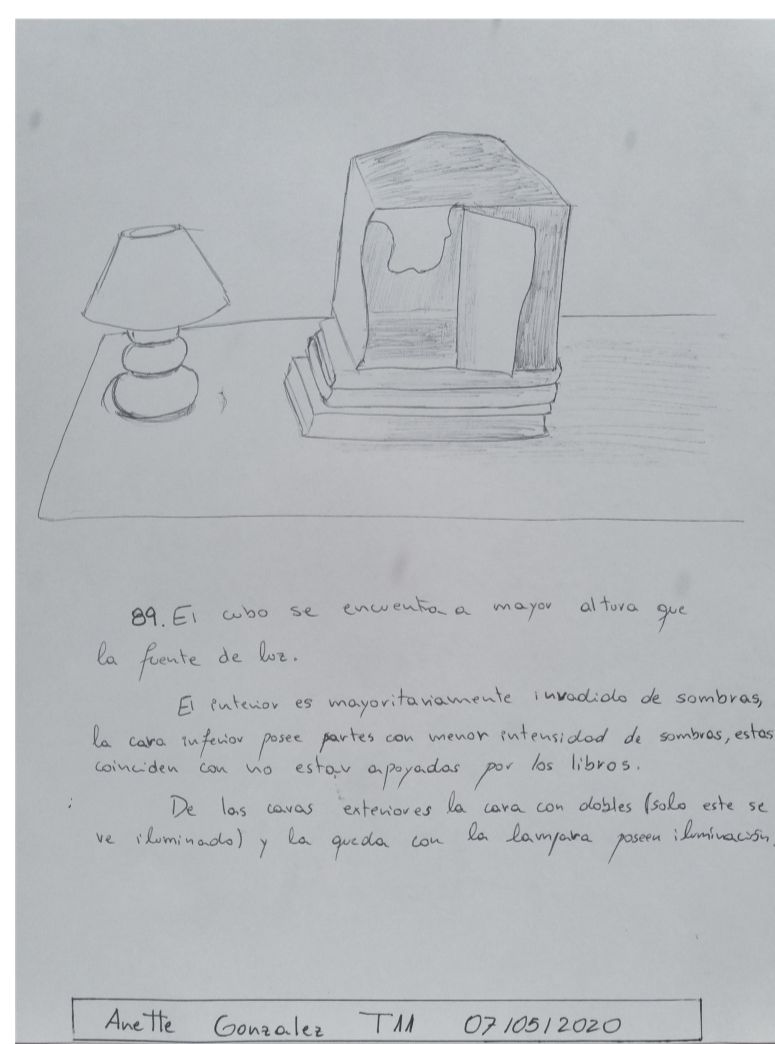 89. El cubo se encuentra a mayor altura que
la fuente de luz.
El interior es mayoritariamente invadido de sombras,
la cara inferior posee partes con menor intensidad de sombras, estas
coinciden con no estar apoyadas por los libros.
De las caras exteriores la cara con dobles (solo este se
ve iluminado) y la queda con la lampara poseen iluminación.
Anette Gonzalez T11 07/05/2020